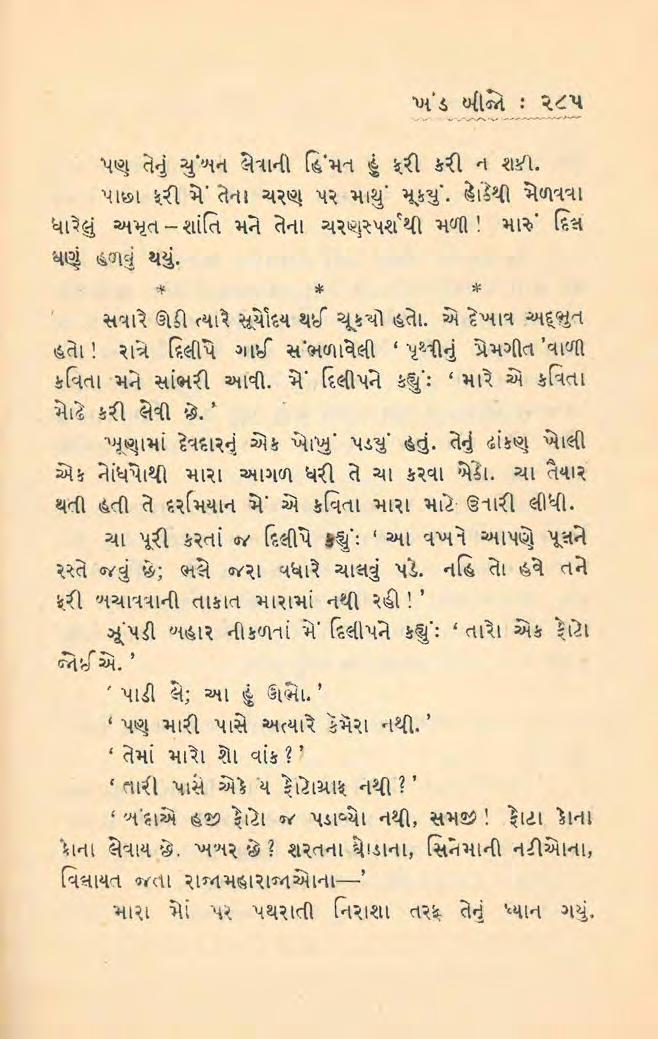 ખંડ બીજો : ૨૮૫
પણ તેનું ચુંબન લેવાની હિંમત હું ફરી કરી ન શકી.
પાછા ફરી મેં તેના ચરણ પર માથું મૂક્યું. હોઠેથી મેળવવા
ધારેલું અમૃત – શાંતિ મને તેના ચરણસ્પર્શથી મળી ! મારું દિલ
ઘણું હળવું થયું.
* * *
સવારે ઊઠી ત્યારે સૂર્યોદય થઈ ચૂક્યો હતો. એ દેખાવ અદ્ભુત
હતો ! રાત્રે દિલીપે ગાઈ સંભળાવેલી ‘ પૃથ્વીનું પ્રેમગીત ’વાળી
કવિતા મને સાંભરી આવી. મેં દિલીપને કહ્યું: ‘ મારે એ કવિતા
મોઢે કરી લેવી છે. ’
ખૂણામાં દેવદારનું એક ખોખું પડ્યું હતું. તેનું ઢાંકણ ખોલી
એક નોંધપોથી મારા આગળ ધરી તે ચા કરવા બેઠો. ચા તૈયાર
થતી હતી તે દરમિયાન મેં એ કવિતા મારા માટે ઉતારી લીધી.
ચા પૂરી કરતાં જ દિલીપે કહ્યું: ‘ આ વખને આપણે પૂલને
રસ્તે જવું છે; ભલે જરા વધારે ચાલવું પડે. નહિ તો હવે તને
ફરી બચાવવાની તાકાત મારામાં નથી રહી ! ’
ઝૂંપડી બહાર નીકળતાં મેં દિલીપને કહ્યું: ‘ તારો એક ફોટો
જોઈએ. ’
‘ પાડી લે; આ હું ઊભો. ’
‘ પણ મારી પાસે અત્યારે કૅમૅરા નથી. ’
‘ તેમાં મારો શો વાંક ? ’
‘ તારી પાસે એકે ય ફોટોગ્રાફ નથી ? ’
‘ બંદાએ હજી ફોટો જ પડાવ્યો નથી, સમજી ! ફોટા કોના
કોના લેવાય છે. ખબર છે ? શરતના ઘોડાના, સિનેમાની નટીઓના,
વિલાયત જતા રાજામહારાજાઓના—’
મારા મોં પર પથરાતી નિરાશા તરફ તેનું ધ્યાન ગયું.